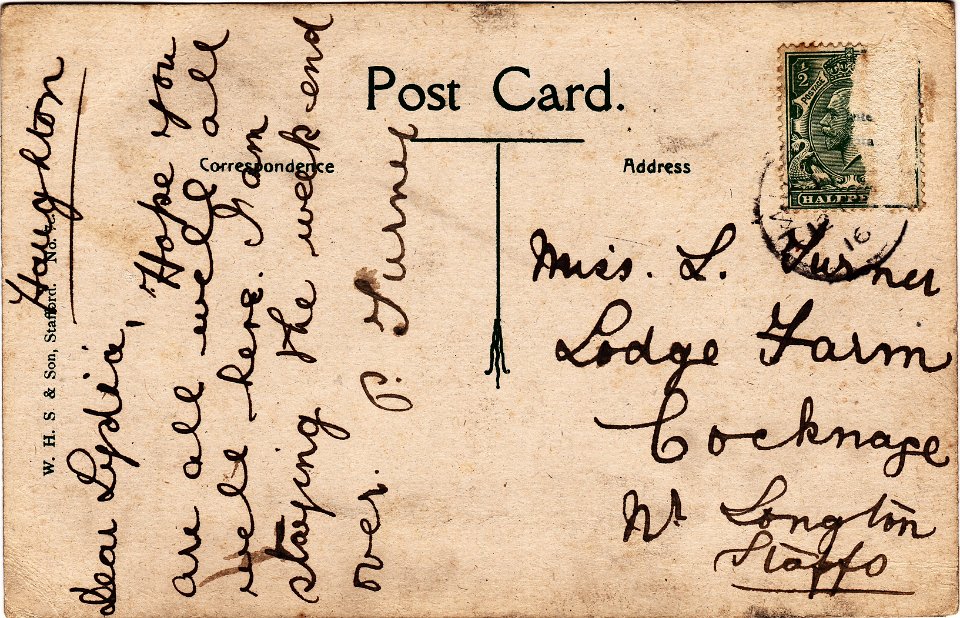 Post Card.
Correspondence
Address
½
HALFPE
16
W. H. S & Son, Stafford. No.
Haughton
Dear Lydia,
Hope you
are all well all
well here. I am
staying the week-end
over. P. Turner
Miss. L. Turner
Lodge Farm
Cocknage
Nr Longton
Staffs